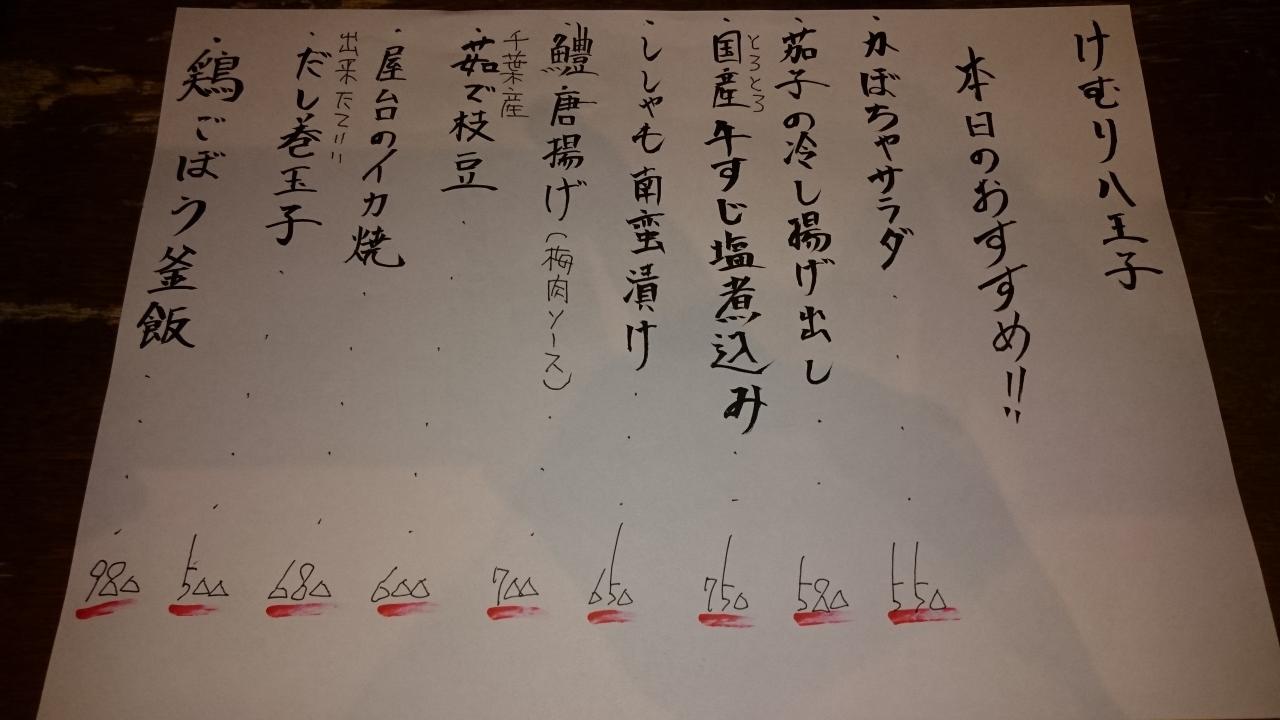 けむり八王子
本日のおすすめ!!
・かぼちゃサラダ 550
・茄子の冷し揚げ出し 580
とろとろ
・国産牛すじ塩煮込み 750
・ししゃも南蛮漬け 650
・鱧唐揚げ(梅肉ソース) 700
千葉産
・茹で枝豆 600
・屋台のイカ焼 680
出来たて!!
・だし巻玉子 500
・鶏ごぼう釜飯 980